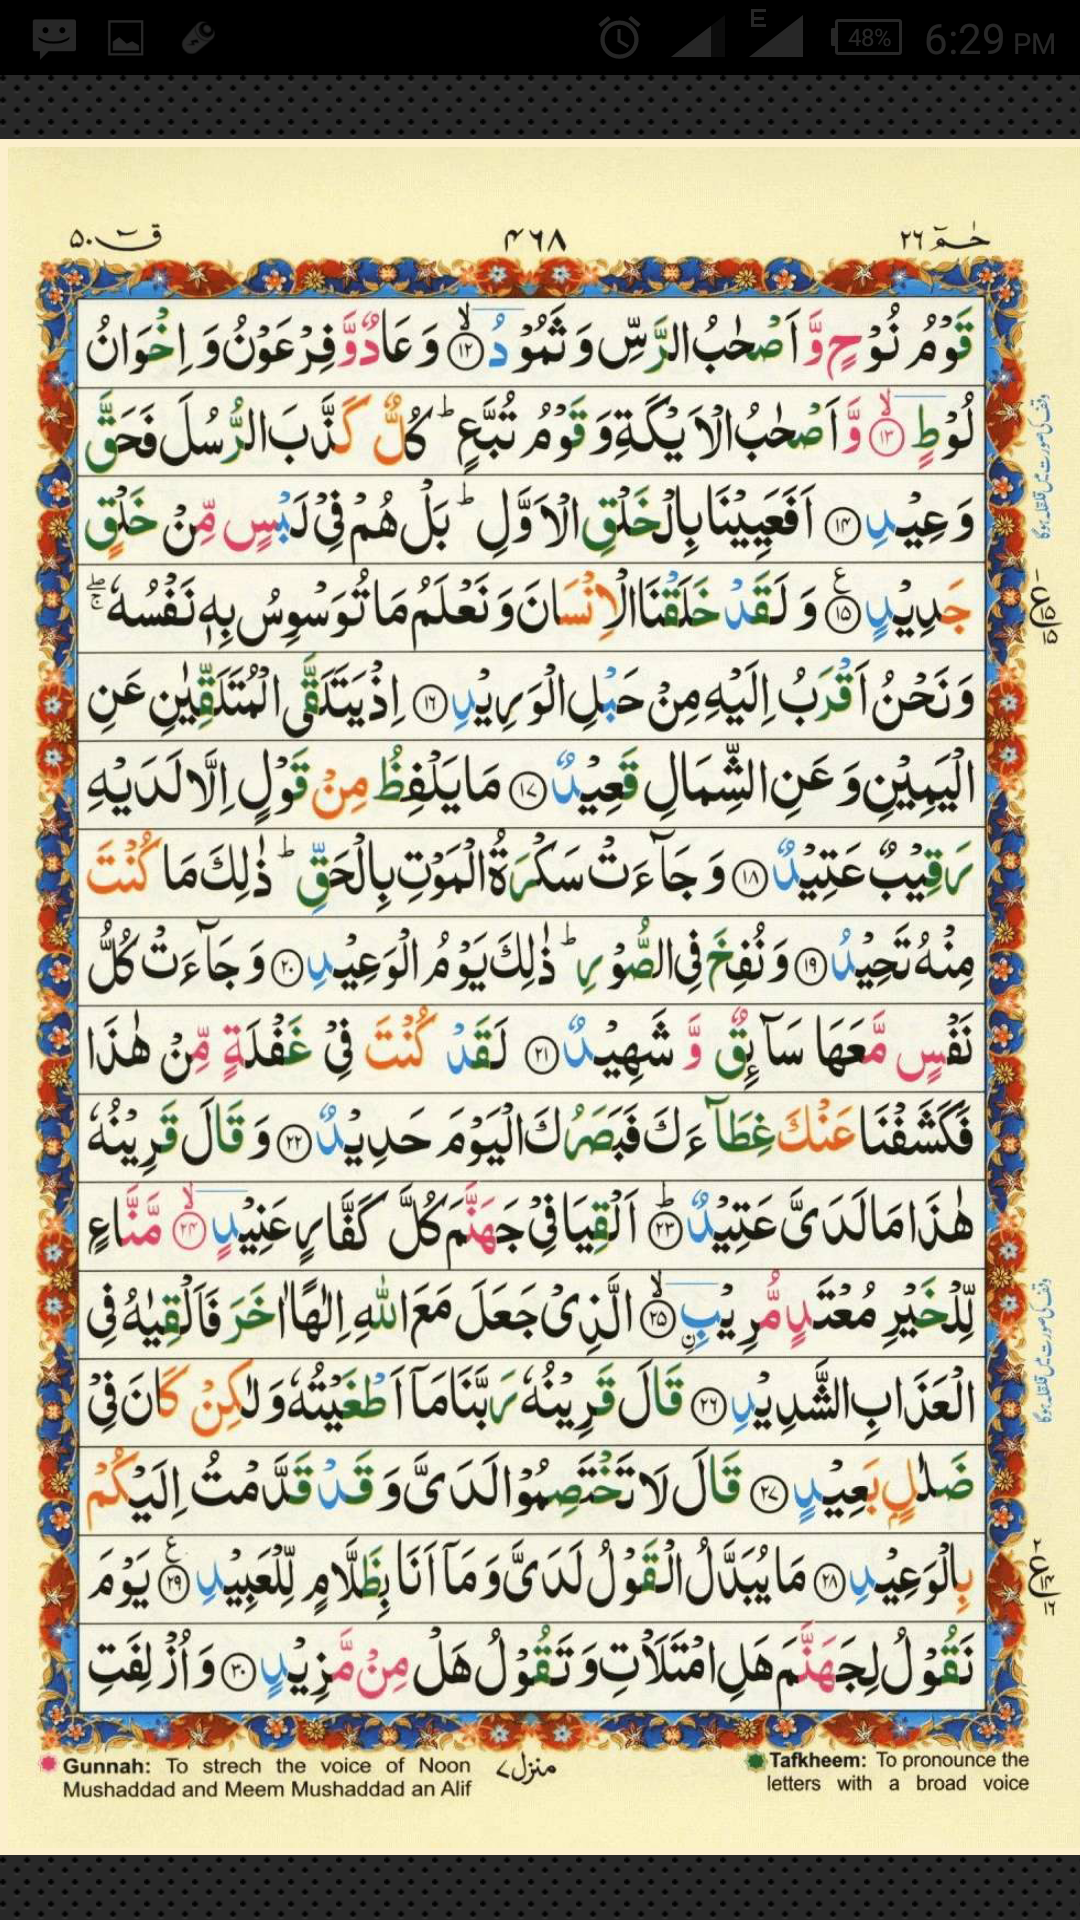 48% 6:29 PM
E
حٰمٓ ٢٦
٤٦٨
قٓ ٥٠
قَوْمُ نُوْحٍ وَّ اَصْحٰبُ الرَّسِّ وَ ثَمُوْدُ ۙ﴿١٢﴾ وَ عَادٌ وَّ فِرْعَوْنُ وَ اِخْوَانُ
لُوْطٍ ۙ﴿١٣﴾ وَّ اَصْحٰبُ الْاَيْكَةِ وَ قَوْمُ تُبَّعٍ ؕ كُلٌّ كَذَّبَ الرُّسُلَ فَحَقَّ
وَعِيْدِ ﴿١٤﴾ اَفَعَيِيْنَا بِالْخَلْقِ الْاَوَّلِ ؕ بَلْ هُمْ فِيْ لَبْسٍ مِّنْ خَلْقٍ
جَدِيْدٍ ﴿١٥﴾ۧ وَ لَقَدْ خَلَقْنَا الْاِنْسَانَ وَ نَعْلَمُ مَا تُوَسْوِسُ بِهٖ نَفْسُهٗ ۖۚ
وَ نَحْنُ اَقْرَبُ اِلَيْهِ مِنْ حَبْلِ الْوَرِيْدِ ﴿١٦﴾ اِذْ يَتَلَقَّى الْمُتَلَقِّيٰنِ عَنِ
الْيَمِيْنِ وَ عَنِ الشِّمَالِ قَعِيْدٌ ﴿١٧﴾ مَا يَلْفِظُ مِنْ قَوْلٍ اِلَّا لَدَيْهِ
رَقِيْبٌ عَتِيْدٌ ﴿١٨﴾ وَ جَآءَتْ سَكْرَةُ الْمَوْتِ بِالْحَقِّ ؕ ذٰلِكَ مَا كُنْتَ
مِنْهُ تَحِيْدُ ﴿١٩﴾ وَ نُفِخَ فِي الصُّوْرِ ؕ ذٰلِكَ يَوْمُ الْوَعِيْدِ ﴿٢٠﴾ وَ جَآءَتْ كُلُّ
نَفْسٍ مَّعَهَا سَآئِقٌ وَّ شَهِيْدٌ ﴿٢١﴾ لَقَدْ كُنْتَ فِيْ غَفْلَةٍ مِّنْ هٰذَا
فَكَشَفْنَا عَنْكَ غِطَآءَكَ فَبَصَرُكَ الْيَوْمَ حَدِيْدٌ ﴿٢٢﴾ وَ قَالَ قَرِيْنُهٗ
هٰذَا مَا لَدَيَّ عَتِيْدٌ ؕ﴿٢٣﴾ اَلْقِيَا فِيْ جَهَنَّمَ كُلَّ كَفَّارٍ عَنِيْدٍ ۙ﴿٢٤﴾ مَّنَّاعٍ
لِّلْخَيْرِ مُعْتَدٍ مُّرِيْبِ ۙ﴿٢٥﴾ الَّذِيْ جَعَلَ مَعَ اللّٰهِ اِلٰهًا اٰخَرَ فَاَلْقِيٰهُ فِي
الْعَذَابِ الشَّدِيْدِ ﴿٢٦﴾ قَالَ قَرِيْنُهٗ رَبَّنَا مَآ اَطْغَيْتُهٗ وَ لٰكِنْ كَانَ فِيْ
ضَلٰلٍ بَعِيْدٍ ﴿٢٧﴾ قَالَ لَا تَخْتَصِمُوْا لَدَيَّ وَ قَدْ قَدَّمْتُ اِلَيْكُمْ
بِالْوَعِيْدِ ﴿٢٨﴾ مَا يُبَدَّلُ الْقَوْلُ لَدَيَّ وَ مَآ اَنَا بِظَلَّامٍ لِّلْعَبِيْدِ ﴿٢٩﴾ۧ يَوْمَ
نَقُوْلُ لِجَهَنَّمَ هَلِ امْتَلَاْتِ وَ تَقُوْلُ هَلْ مِنْ مَّزِيْدٍ ﴿٣٠﴾ وَ اُزْلِفَتِ
وقف کی صورت میں قلقلہ ہوگا
ع ١ ١٥ ١٥
وقف کی صورت میں قلقلہ ہوگا
ع ٢ ١٤ ١٦
Gunnah: To strech the voice of Noon
Mushaddad and Meem Mushaddad an Alif
منزل ٧
Tafkheem: To pronounce the
letters with a broad voice